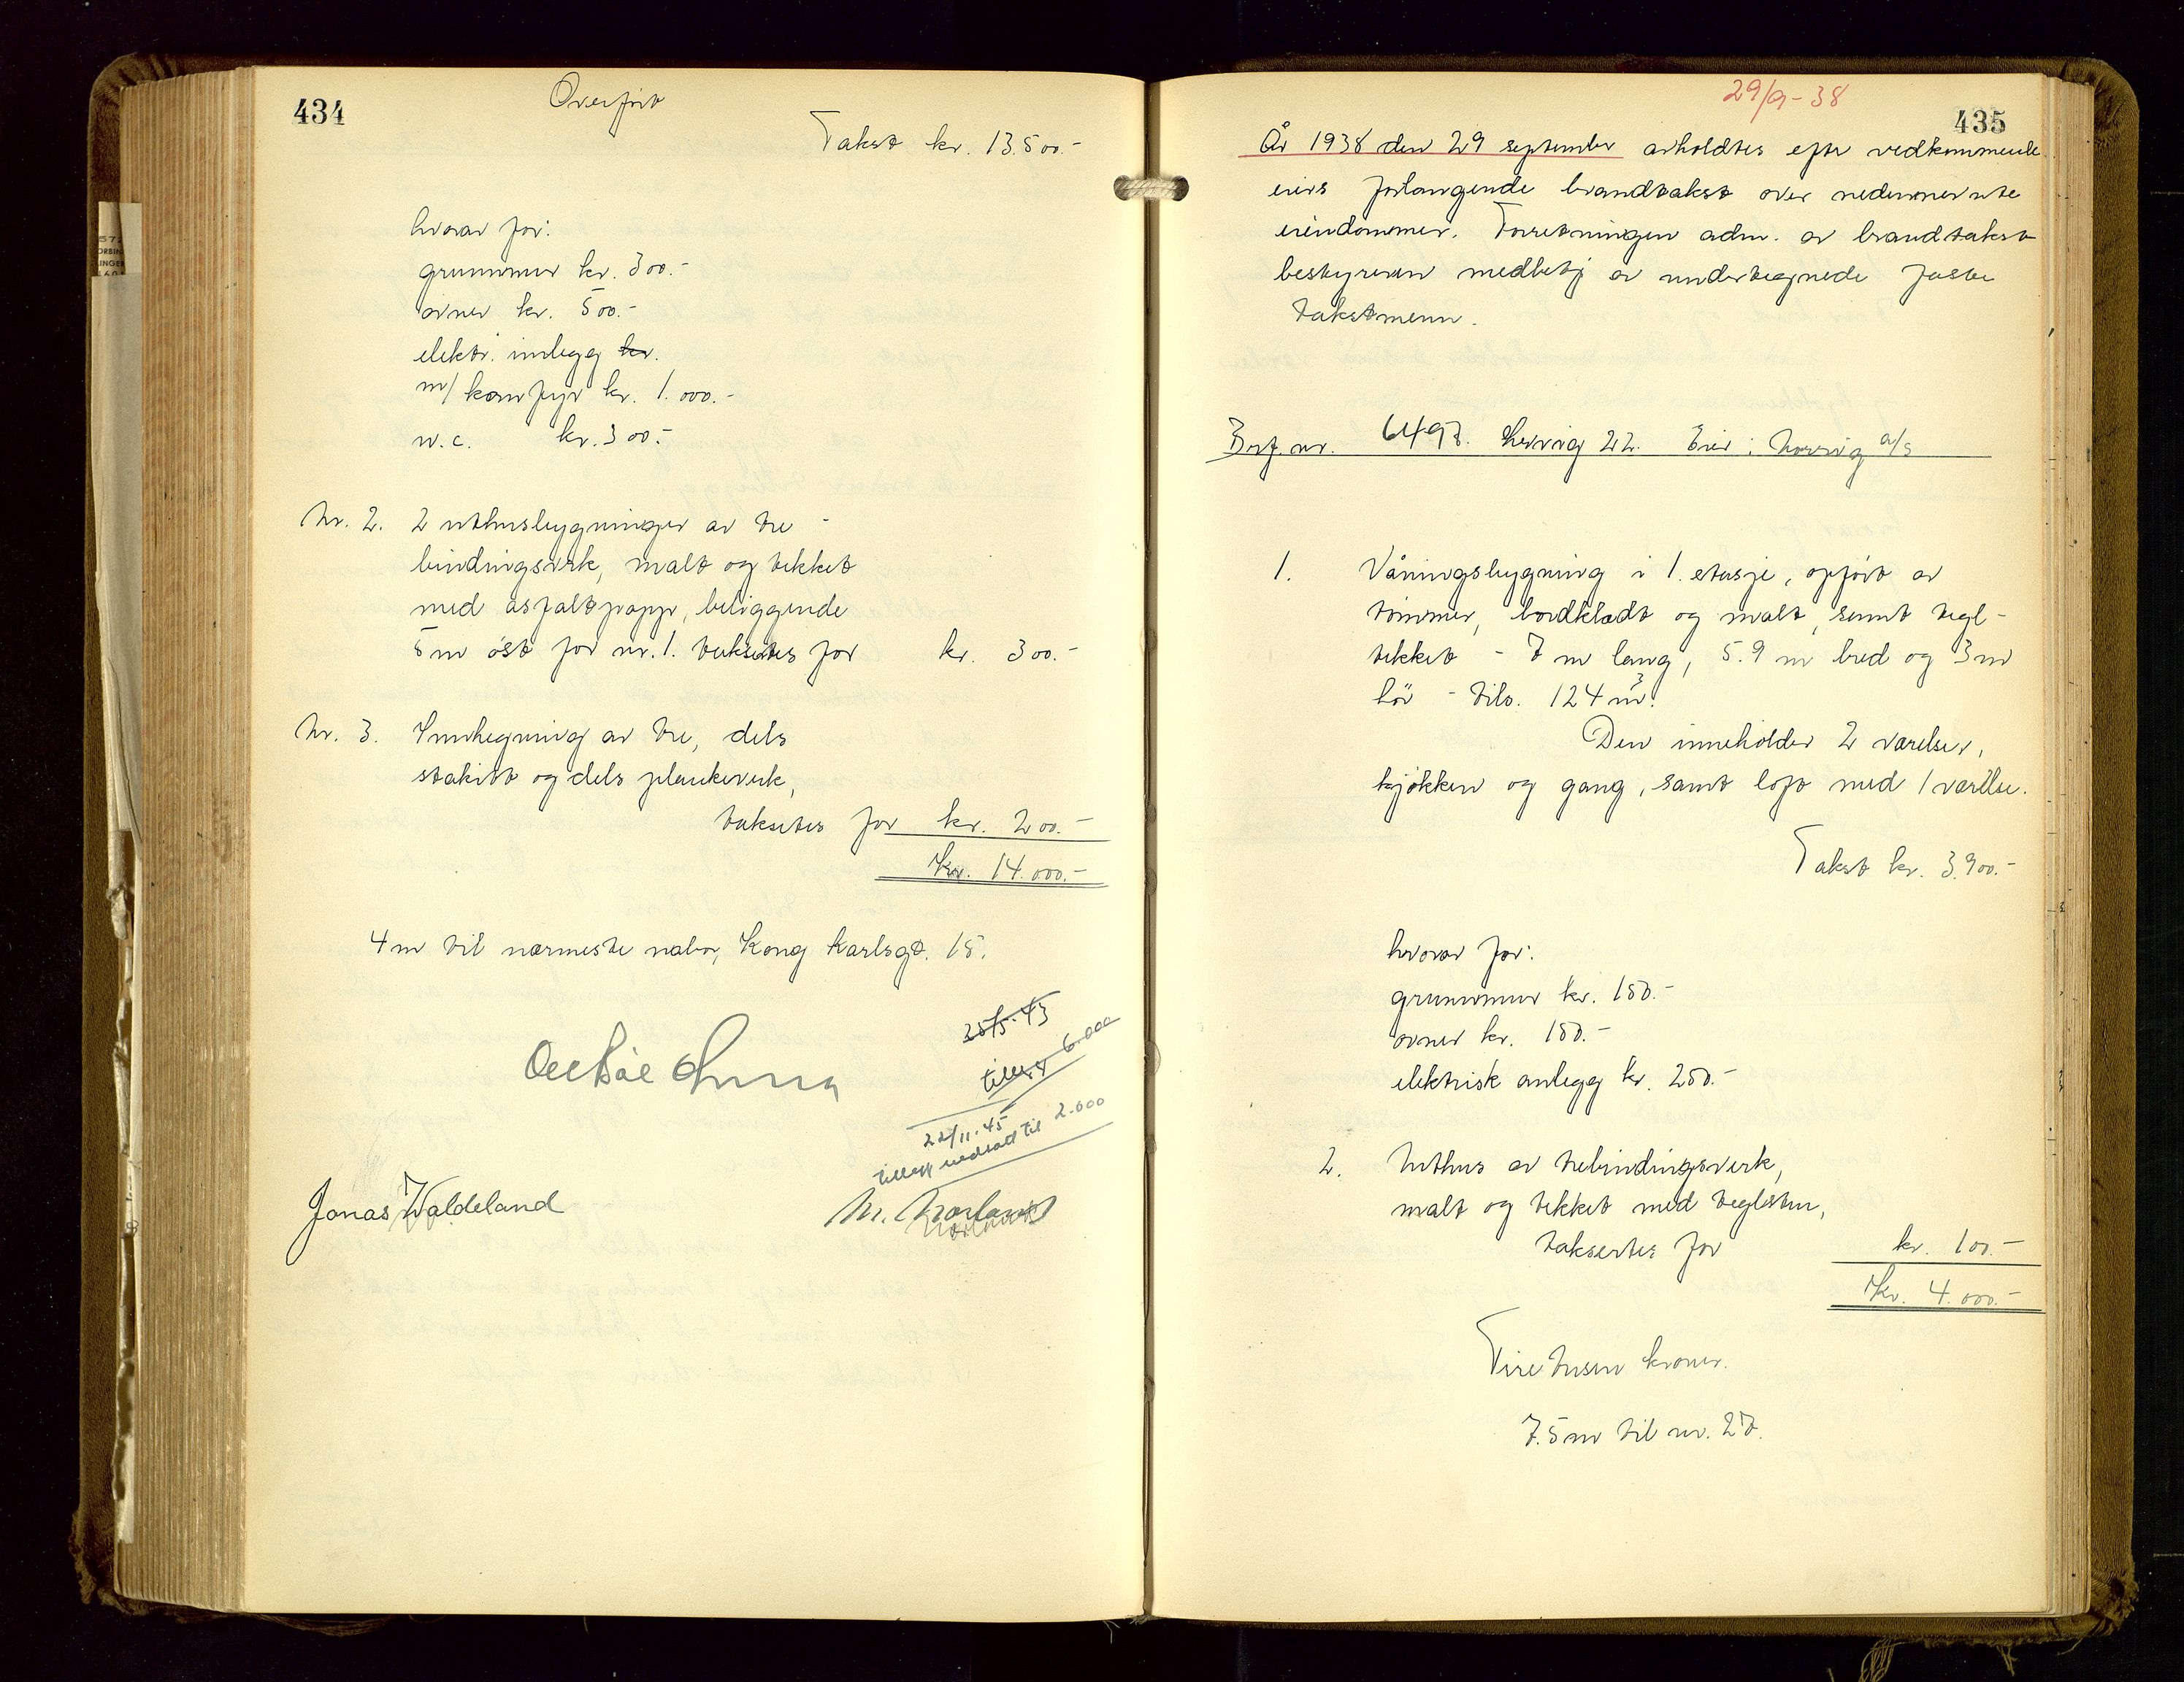 434
Overført
Takst kr. 13.500.-
hvorav for:
grunnmur kr. 300.-
ovner kr. 500.-
elektr. innlegg kr.
m/ komfyr kr. 1.000.-
w.c. kr. 300.-
Nr. 2. 2 uthusbygninger av tre-
bindingsverk, malt og tekket
med asfaltpapp, beliggende
5 m øst for nr. 1. takseres for kr. 300.-
Nr. 3. Innhegning av tre, dels
stakitt og dels plankeverk,
takseres for kr. 200.-
Kr. 14.000.-
4 m til nærmeste nabo, Kong Karlsgt. 15.
25/5-43
tillegg 6.000
22/11-45
tillegg nedsatt til 2.000
Jonas Waldeland
29/9-38
435
År 1938 den 29 september avholdtes efter vedkommende
eiers forlangende brandtakst over nedennevnte
eiendommer. Forretningen adm. av brandtakst
bestyreren medbetj av undertegnede faste
takstmenn.
Brf. nr. 6497. 22. Eier: a/s
1. Våningsbygning i 1. etasje, opført av
tømmer, bordklædt og malt, samt tegl-
tekket - 7 m lang, 5.9 m bred og 3 m
høi - tils. 124 m³.
Den inneholder 2 værelser,
kjøkken og gang, samt loft med 1 værelse.
Takst kr. 3.900.-
hvorav for:
grunnmur kr. 150.-
ovner kr. 150.-
elektrisk anlegg kr. 250.-
2. Uthus av trebindingsverk,
malt og tekket med teglsten,
takseres for kr. 100.-
Kr. 4.000.-
Fire tusen kroner.
7.5 m til nr. 27.